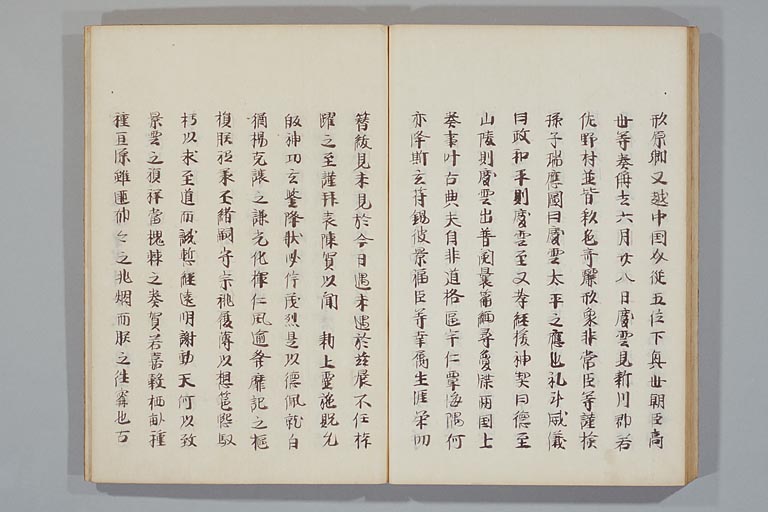 欤原卿又越中国叙従五位下興世朝臣高
世等奏偁去六月廿八日慶雲見新川郡若
佐野村並皆秋色奇麗欤衆非常臣等謹検
孫子瑞應圖曰慶雲太平之應也礼斗威儀
曰政和平則慶雲至又孝経援神契曰徳至
山陵則慶雲出普閲曩篇細尋憂牒両国上
奏事叶古典夫自非道格區宇仁覃海隅何
亦降斯玄符錫彼景福臣等幸属生涯栄叨
簪紱見未見於今日遇未遇於茲晨不任抃
躍之至謹拝表陳賀以聞　勅上靈施貺允
帰神功玄鑒降狀必侍茂烈是以徳佩就日
猶揚克譲之謙光化揮仁風逾發靡記之極
複朕祗乗丕緒嗣守崇祧履薄以想菴煕馭
朽以求至道而誠慙経遠明謝動天何以致
景雲之禎祥當槐棘之奏賀若嘉穀栖畝種
種亘原雖運仲之兆烟而朕之佳奪也古